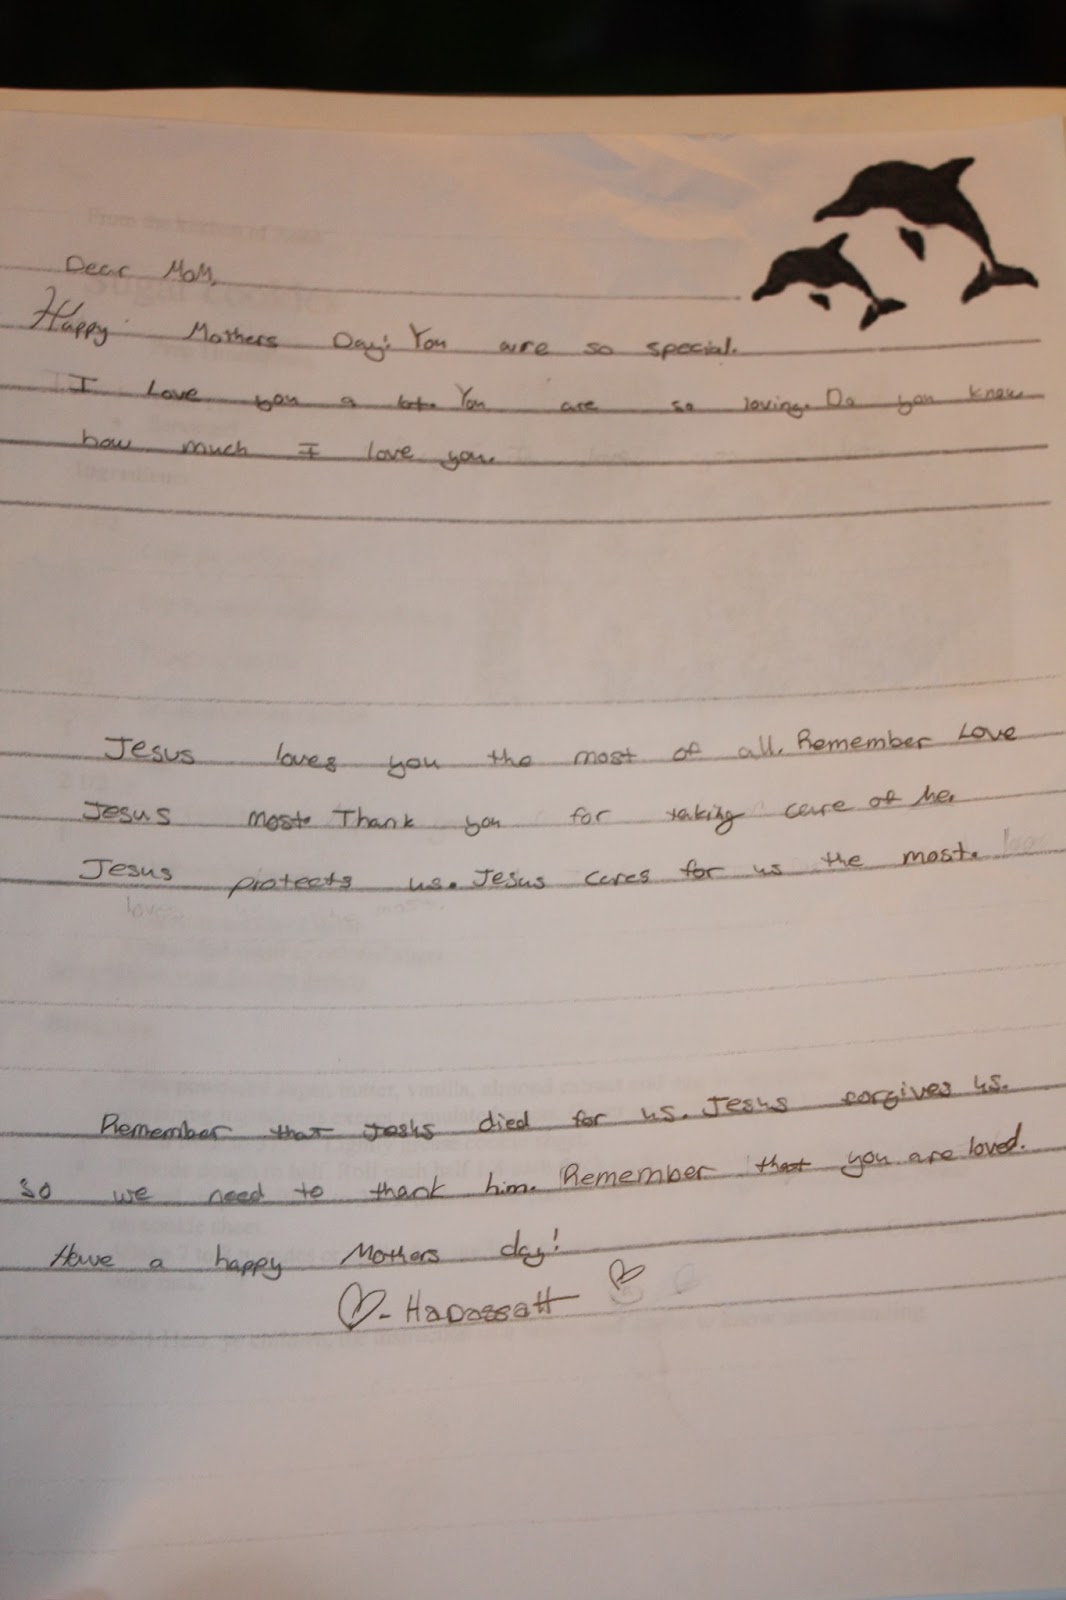 Dear MoM,
Happy Mothers Day! You are so special.
I Love you a lot. You are so loving. Do you know
how much I love you.
Jesus loves you the most of all. Remember Love
Jesus most. Thank you for taking care of me.
Jesus protects us. Jesus cares for us the most.
Remember that Jesus died for us. Jesus forgives us.
so we need to thank him. Remember that you are loved.
Have a happy Mothers day!
- HaDassaH